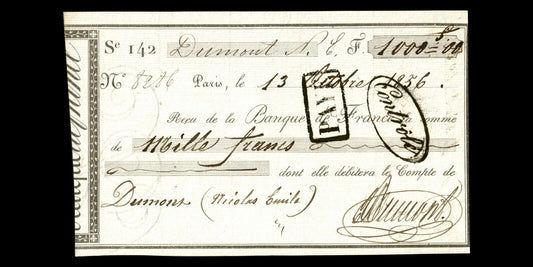 Se 142 Dumont N. E. F. 1000 = 00
No 8286 Paris, le 13 Octobre 1856.
PAYÉ
Contrôle
Reçu de la Banque de France la somme
de Mille francs
dont elle débitera le Compte de
Dumont (Nicolas Emile)
Dumont